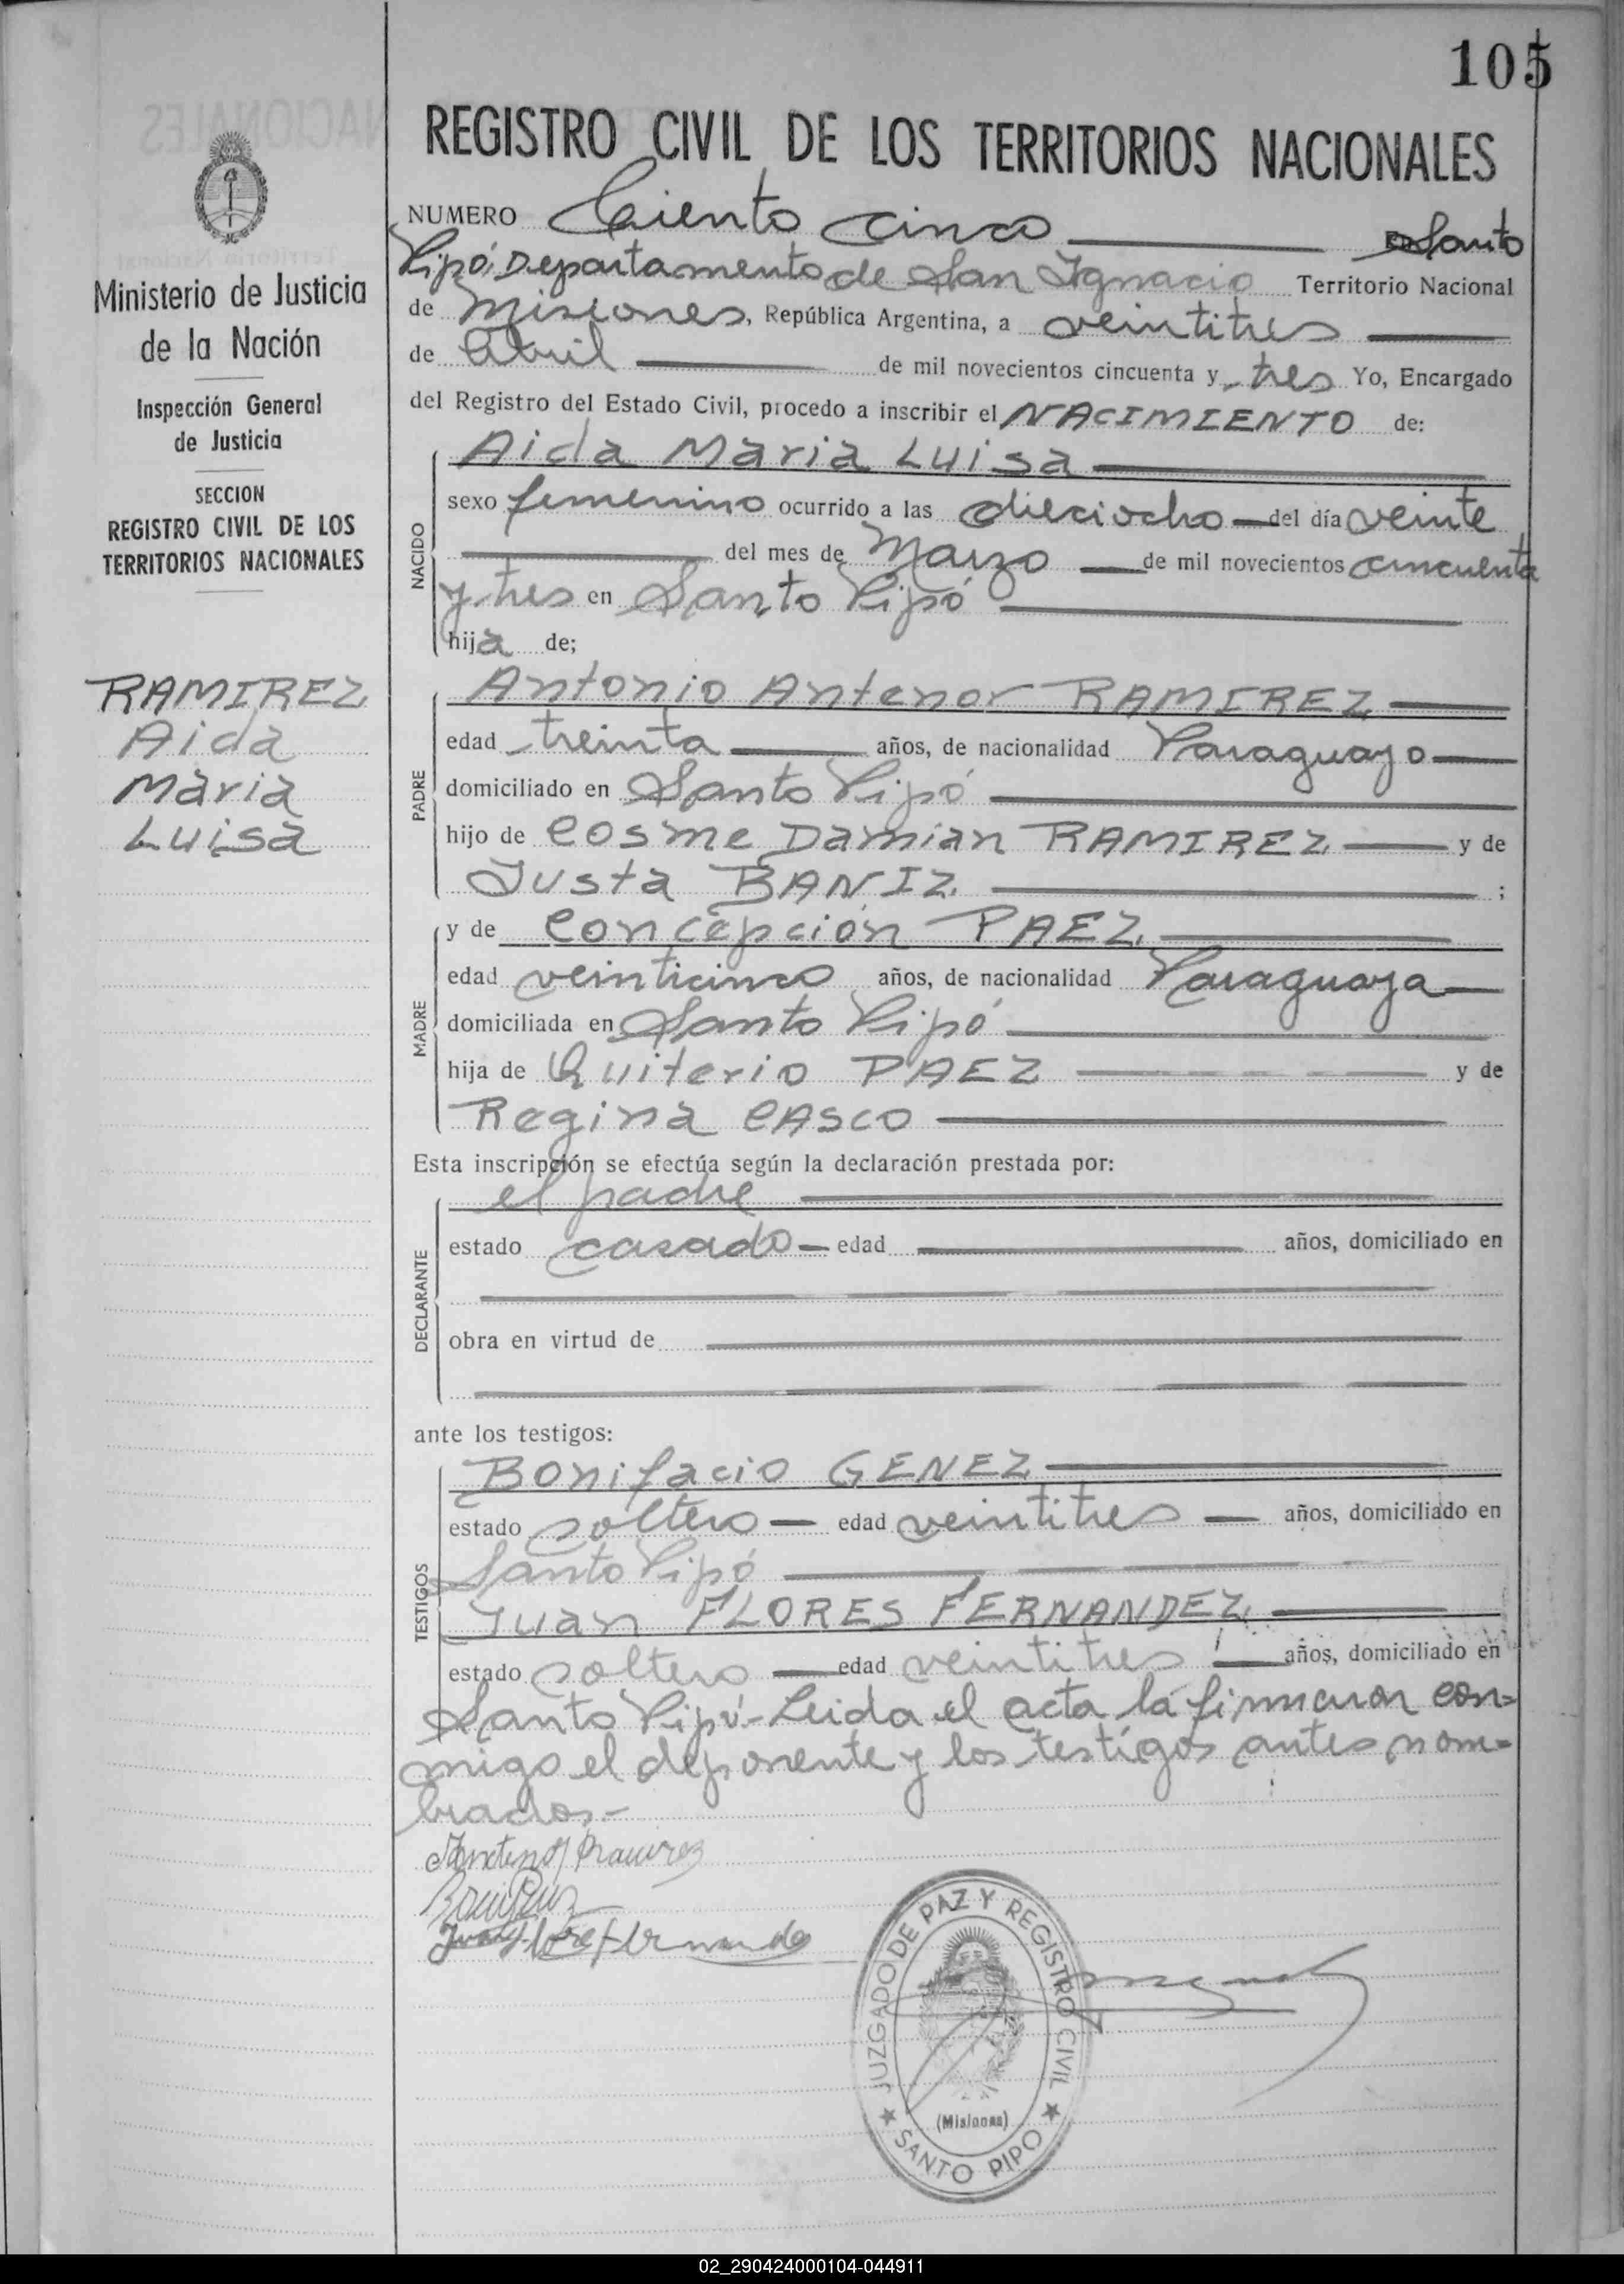 105
REGISTRO CIVIL DE LOS TERRITORIOS NACIONALES
NUMERO Ciento cinco Santo
Pipó, Departamento de San Ignacio Territorio Nacional
de Misiones, República Argentina, a veintitres
de Abril de mil novecientos cincuenta y tres Yo, Encargado
del Registro del Estado Civil, procedo a inscribir el NACIMIENTO de:
Ministerio de Justicia
de la Nación
Inspección General
de Justicia
SECCION
REGISTRO CIVIL DE LOS
TERRITORIOS NACIONALES
RAMIREZ
Aida
Maria
Luisa
NACIDO
Aida Maria Luisa
sexo femenino ocurrido a las dieciocho del día veinte
del mes de Marzo de mil novecientos cincuenta
y tres en Santo Pipó
hija de;
PADRE
Antonio Antenor RAMIREZ
edad treinta años, de nacionalidad Paraguayo
domiciliado en Santo Pipó
hijo de Cosme Damian RAMIREZ y de
Justa BANIZ ;
MADRE
y de Concepción PAEZ
edad veinticinco años, de nacionalidad Paraguaya
domiciliada en Santo Pipó
hija de Quiterio PAEZ y de
Regina CASCO
Esta inscripción se efectúa según la declaración prestada por:
DECLARANTE
el padre
estado casado edad años, domiciliado en
obra en virtud de
ante los testigos:
TESTIGOS
Bonifacio GENEZ
estado soltero edad veintitres años, domiciliado en
Santo Pipó
Juan FLORES FERNANDEZ
estado soltero edad veintitres años, domiciliado en
Santo Pipó - Leida el acta la firmaron con=
migo el deponente y los testigos antes nom=
brados.-
Antenor Ramirez
Juan Flores Fernandez
JUZGADO DE PAZ Y REGISTRO CIVIL
(Misiones)
★ SANTO PIPO ★
02_290424000104-044911